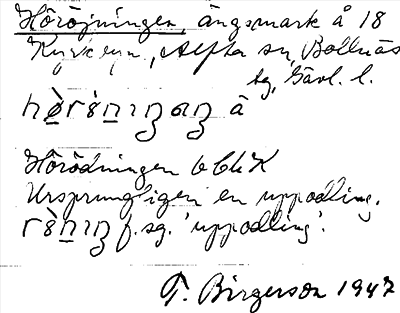 Höröjningen, ängsmark å 18
Kyrkbyn, Alfta sn, Bollnäs
tg, Gävl. l.
å
Hörödningen b bl K
Ursprungligen en uppodling.
f. sg. 'uppodling'.
T. Birgerson 1947